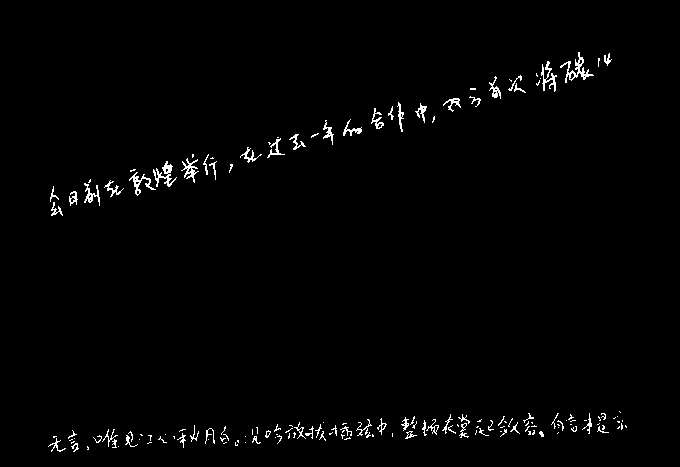 会日前在敦煌举行，在过去一年的合作中，双方首次将碳14
无言，唯见江心秋月白。沉吟放拨插弦中，整顿衣裳起敛容。自言本是京